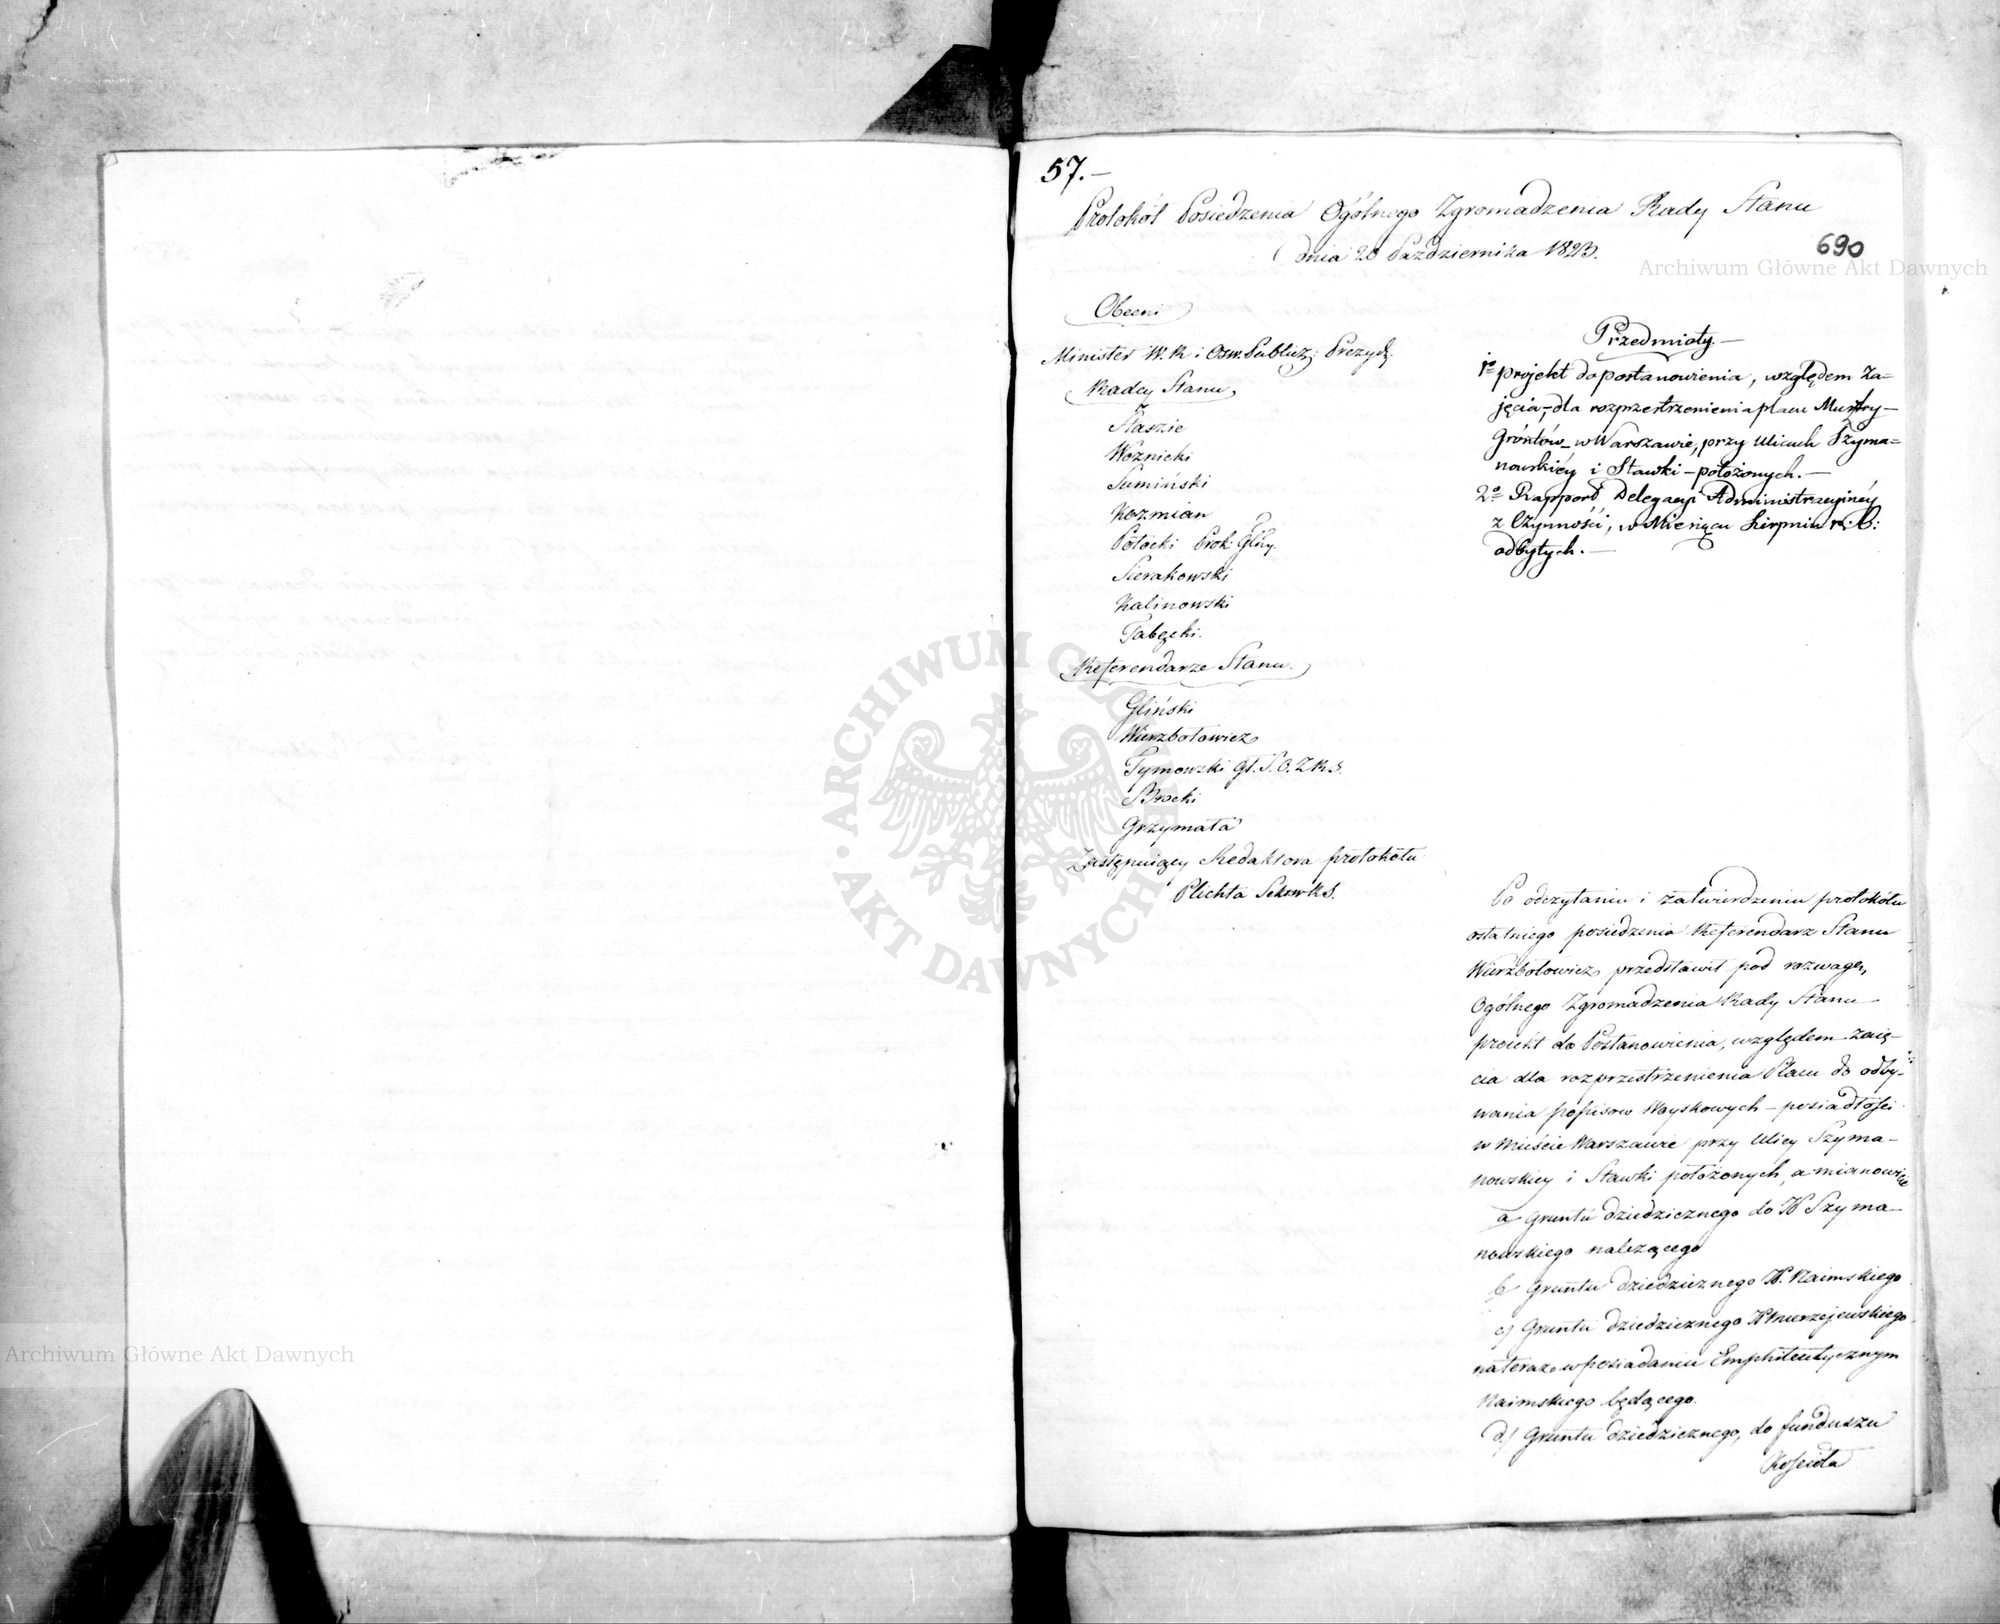 57.—
Protokół Posiedzenia Ogólnego Zgromadzenia Rady Stanu
dnia 20 Października 1823.
690
Archiwum Główne Akt Dawnych
Obecni
Minister W. R. i Ośw. Publicz: Prezyd.
Radcy Stanu
Staszic
Woźnicki
Sumiński
Kozmian
Potocki Prok: Glny.
Sierakowski
Kalinowski
Tabęcki.
Referendarze Stanu.
Gliński
Wierzbołowicz
Tymowski
Brocki
Grzymała
Zastępuiący Redaktora protokółu
Plichta
Przedmioty.—
1º projekt do postanowienia, względem Za=
jęcia, dla rozprzestrzenienia placu Mustry—
Gróntów w Warszawie, przy Ulicach Szyma=
nowskiéy i Stawki – położonych.—
2º Rapport Delegacyi Administracyinéy
z Czynności, w Miesiącu Sierpniu r: b:
odbytych.—
Po odczytaniu i zatwierdzeniu protokółu
ostatniego posiedzenia Referendarz Stanu
Wierzbołowicz przedstawił pod rozwagę,
Ogólnego Zgromadzenia Rady Stanu
proiekt do Postanowienia, względem zaię–
cia dla rozprzestrzenienia Placu do odby–
wania popisow Woyskowych – posiadłości
w Mieście Warszawie przy Ulicy Szyma–
nowskiey i Stawki położonych, a mianowicie
a Gruntu dziedzicznego do W Szyma–
nowskiego należącego
b Gruntu dziedzicznego W. Naimskiego
c) Gruntu dziedzicznego
na teraz w posiadaniu Emphiteutycznym
Naimskiego będącego.
d/ Gruntu dziedzicznego, do funduszu
Kościoła
ARCHIWUM GŁÓWNE AKT DAWNYCH
Archiwum Główne Akt Dawnych